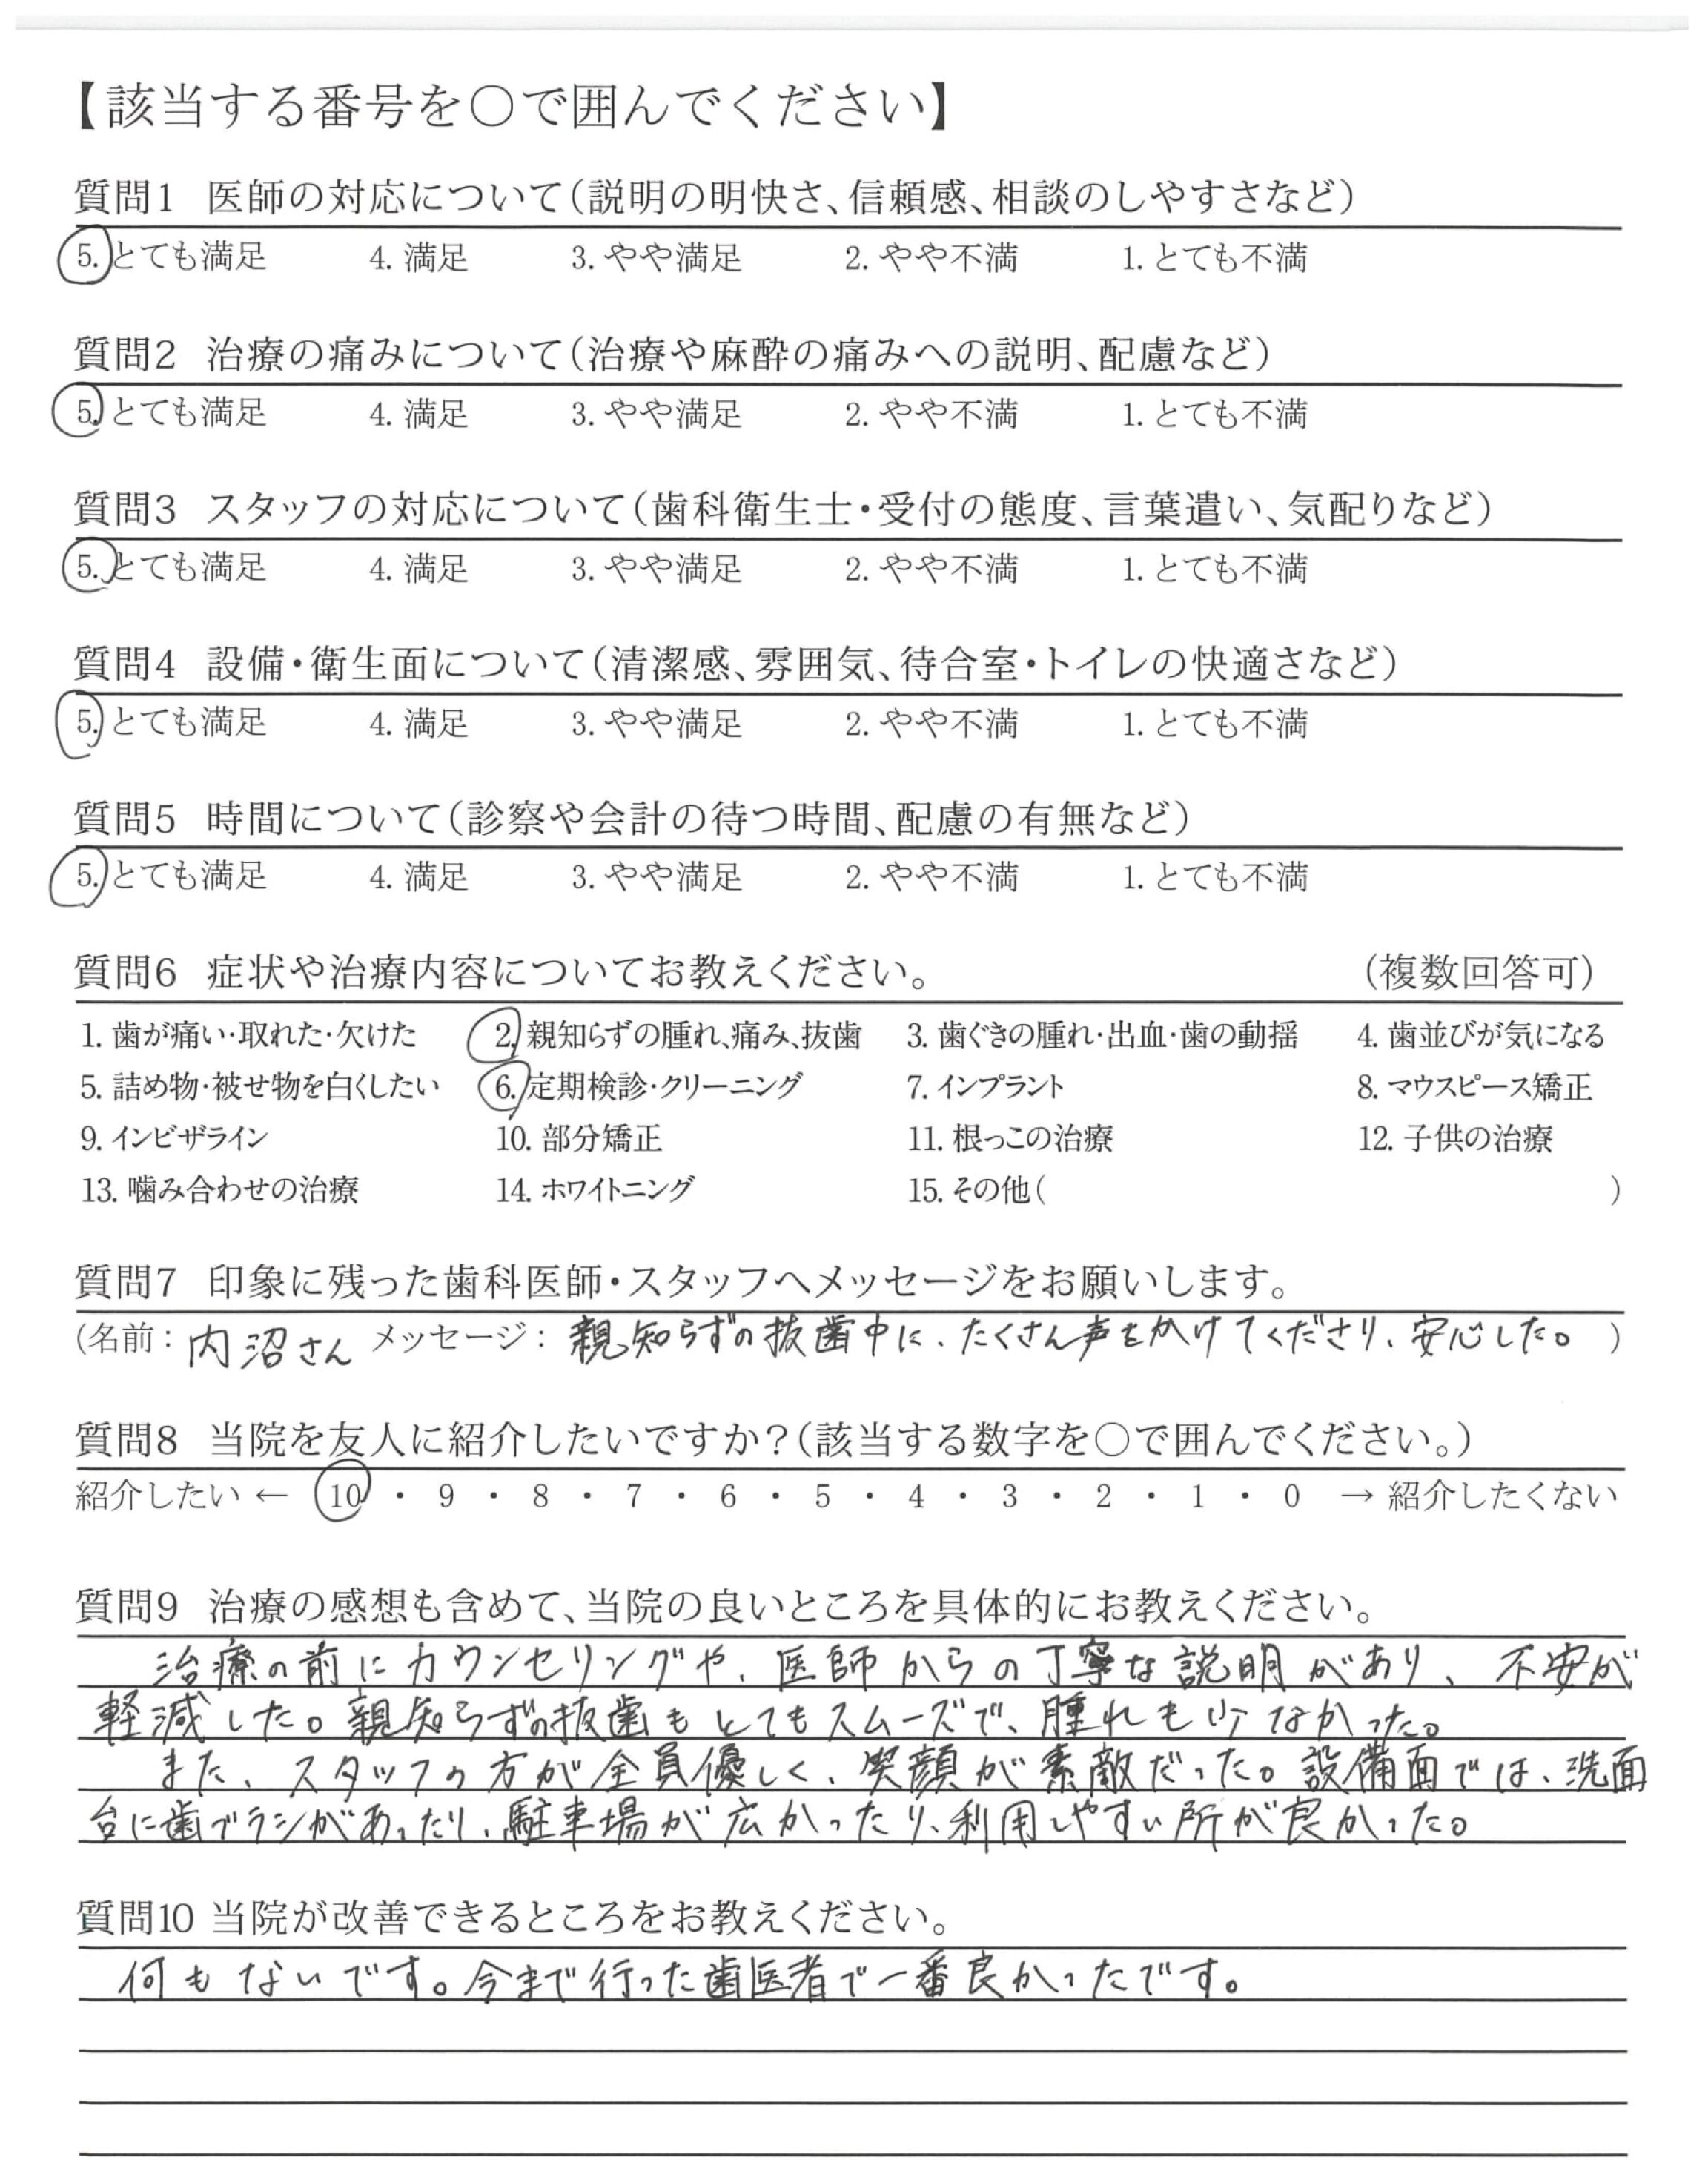 【該当する番号を○で囲んでください】
質問1 医師の対応について(説明の明快さ、信頼感、相談のしやすさなど)
5. とても満足 4. 満足 3. やや満足 2. やや不満 1. とても不満
質問2 治療の痛みについて(治療や麻酔の痛みへの説明、配慮など)
5. とても満足 4. 満足 3. やや満足 2. やや不満 1. とても不満
質問3 スタッフの対応について(歯科衛生士・受付の態度、言葉遣い、気配りなど)
5. とても満足 4. 満足 3. やや満足 2. やや不満 1. とても不満
質問4 設備・衛生面について(清潔感、雰囲気、待合室・トイレの快適さなど)
5. とても満足 4. 満足 3. やや満足 2. やや不満 1. とても不満
質問5 時間について(診察や会計の待つ時間、配慮の有無など)
5. とても満足 4. 満足 3. やや満足 2. やや不満 1. とても不満
質問6 症状や治療内容についてお教えください。 (複数回答可)
1. 歯が痛い・取れた・欠けた 2. 親知らずの腫れ、痛み、抜歯 3. 歯ぐきの腫れ・出血・歯の動揺 4. 歯並びが気になる
5. 詰め物・被せ物を白くしたい 6. 定期検診・クリーニング 7. インプラント 8. マウスピース矯正
9. インビザライン 10. 部分矯正 11. 根っこの治療 12. 子供の治療
13. 噛み合わせの治療 14. ホワイトニング 15. その他( )
質問7 印象に残った歯科医師・スタッフへメッセージをお願いします。
(名前: 内沼さん メッセージ: 親知らずの抜歯中に、たくさん声をかけてくださり、安心した。 )
質問8 当院を友人に紹介したいですか?(該当する数字を○で囲んでください。)
紹介したい ← 10 ・ 9 ・ 8 ・ 7 ・ 6 ・ 5 ・ 4 ・ 3 ・ 2 ・ 1 ・ 0 → 紹介したくない
質問9 治療の感想も含めて、当院の良いところを具体的にお教えください。
治療の前にカウンセリングや、医師からの丁寧な説明があり、不安が
軽減した。親知らずの抜歯もとてもスムーズで、腫れも少なかった。
また、スタッフの方が全員優しく、笑顔が素敵だった。設備面では、洗面
台に歯ブラシがあったり、駐車場が広かったり、利用しやすい所が良かった。
質問10 当院が改善できるところをお教えください。
何もないです。今まで行った歯医者で一番良かったです。